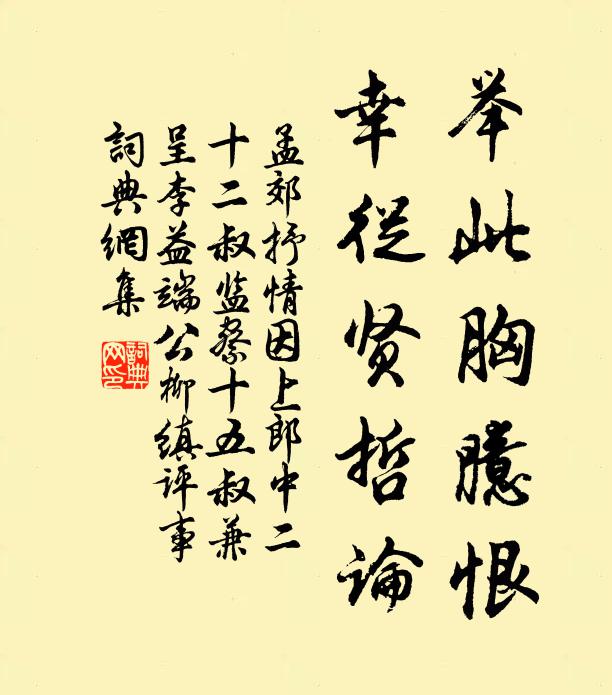 举此胸臆恨
幸从贤哲论
孟郊抒情因上郎中二
十二叔监察十五叔兼
呈李益端公柳缜评事
詞典網集
詞典
网印